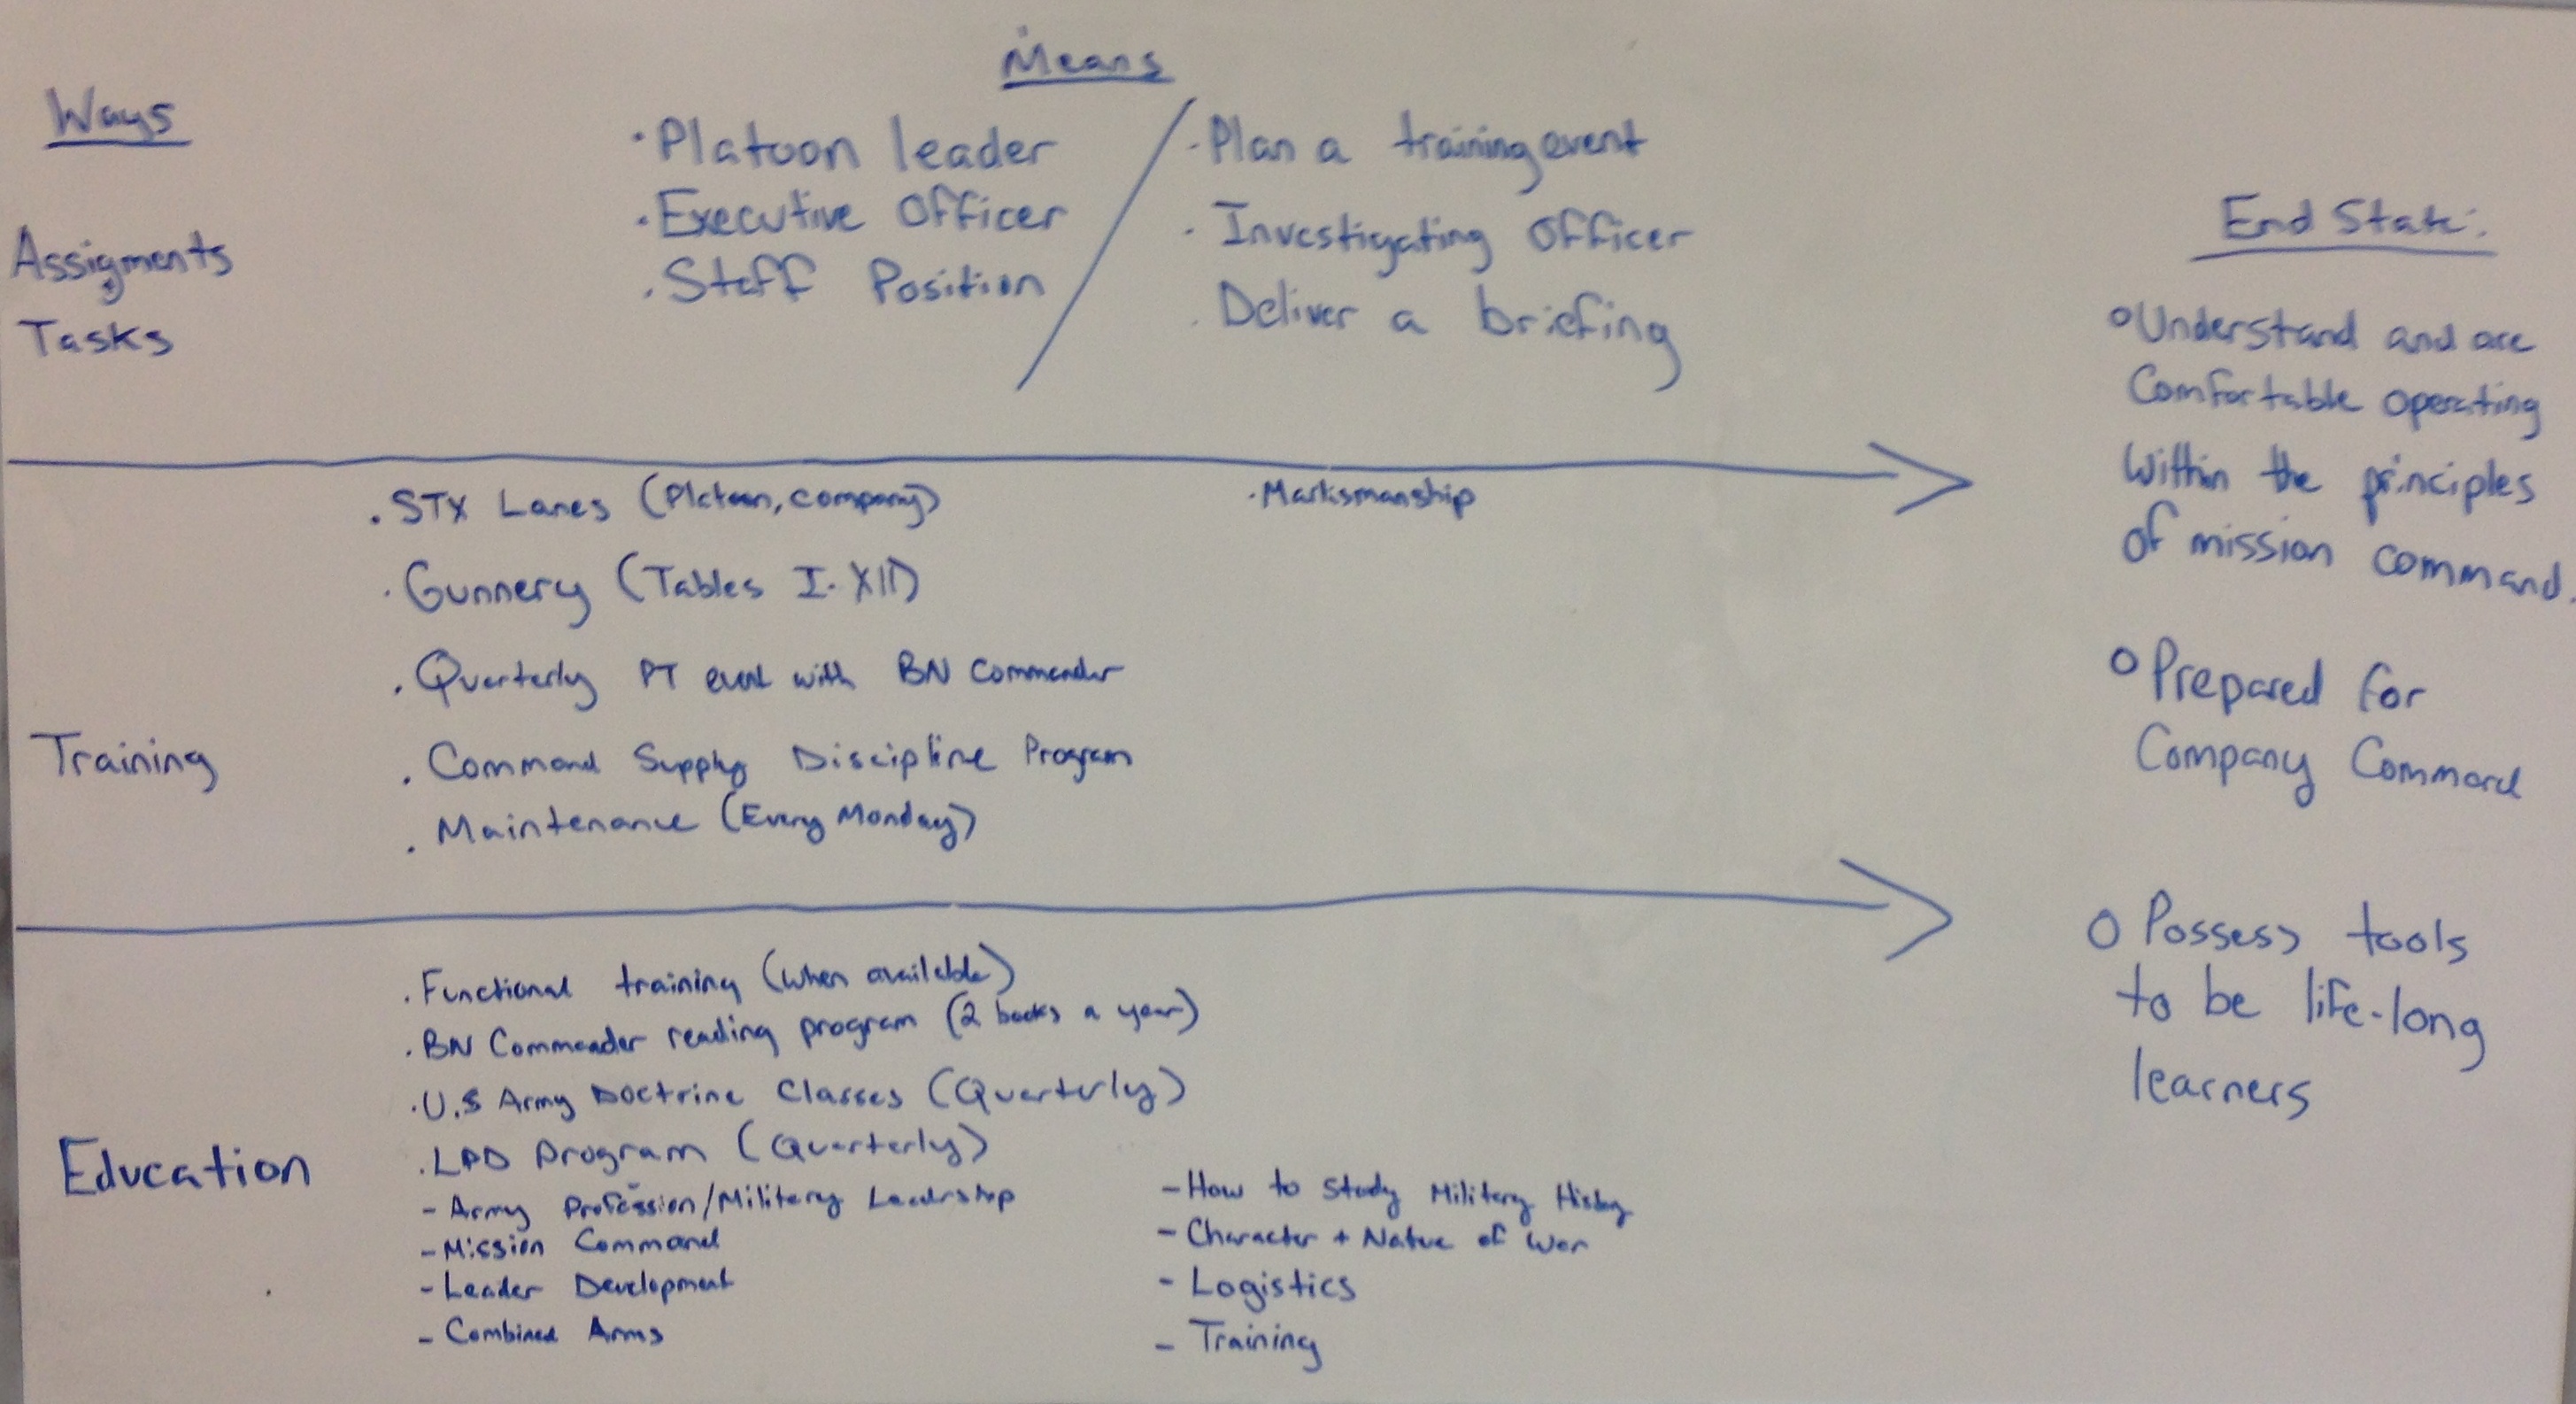 Means
Ways
· Platoon leader
· Executive Officer
· Staff Position
· Plan a training event
· Investigating Officer
· Deliver a briefing
Assigments
+
Tasks
End State:
o Understand and are
Comfortable operating
Within the principles
of mission command.
o Prepared for
Company Command
o Possess tools
to be life-long
learners
Training
· STX Lanes (Platoon, company)
· Marksmanship
· Gunnery (Tables I-XII)
· Quarterly PT event with BN Commander
· Command Supply Discipline Program
· Maintenance (Every Monday)
Education
· Functional training (when available)
· BN Commander reading program (2 books a year)
· U.S Army Doctrine Classes (Quarterly)
· LPD Program (Quarterly)
- Army Profession/Military Leadership
- Mission Command
- Leader Development
- Combined Arms
- How to Study Military History
- Character + Nature of War
- Logistics
- Training